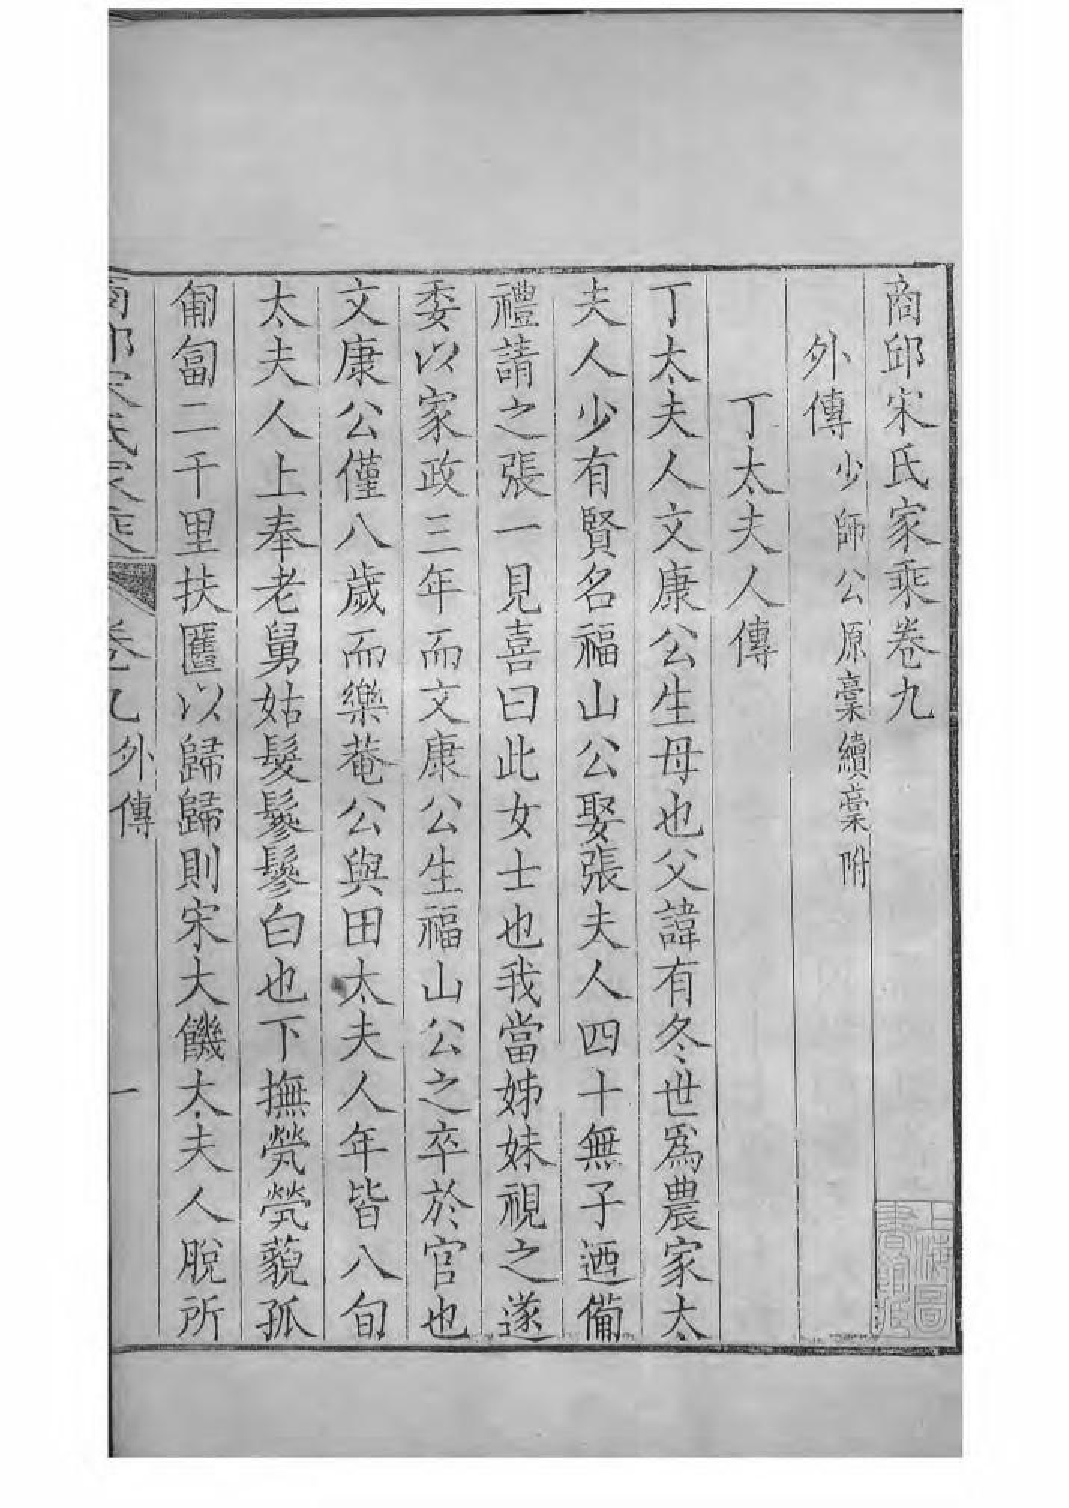 商邱宋氏家乘卷九
外傳少師公原稾續稾附
丁太夫人傳
丁太夫人文康公生母也父諱有冬世爲農家太
夫人少有賢名福山公娶張夫人四十無子迺備
禮請之張一見喜曰此女士也我當姊妹視之遂
委以家政三年而文康公生福山公之卒於官也
文康公僅八歲而樂菴公與田太夫人年皆八旬
太夫人上奉老舅姑髮鬖鬖白也下撫煢煢藐孤
匍匐二千里扶匶以歸歸則宋大饑太夫人脫所
商邱宋氏家乘 卷九外傳 一
上海圖書館藏